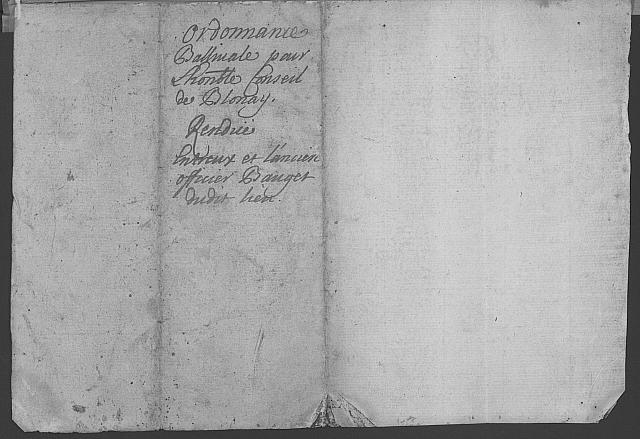 Ordonnance
Ballivale pour
L'honble Conseil
de Blonay.
Rendüe
Entreux et l'ancien
officier Bauget
dudit lieu.